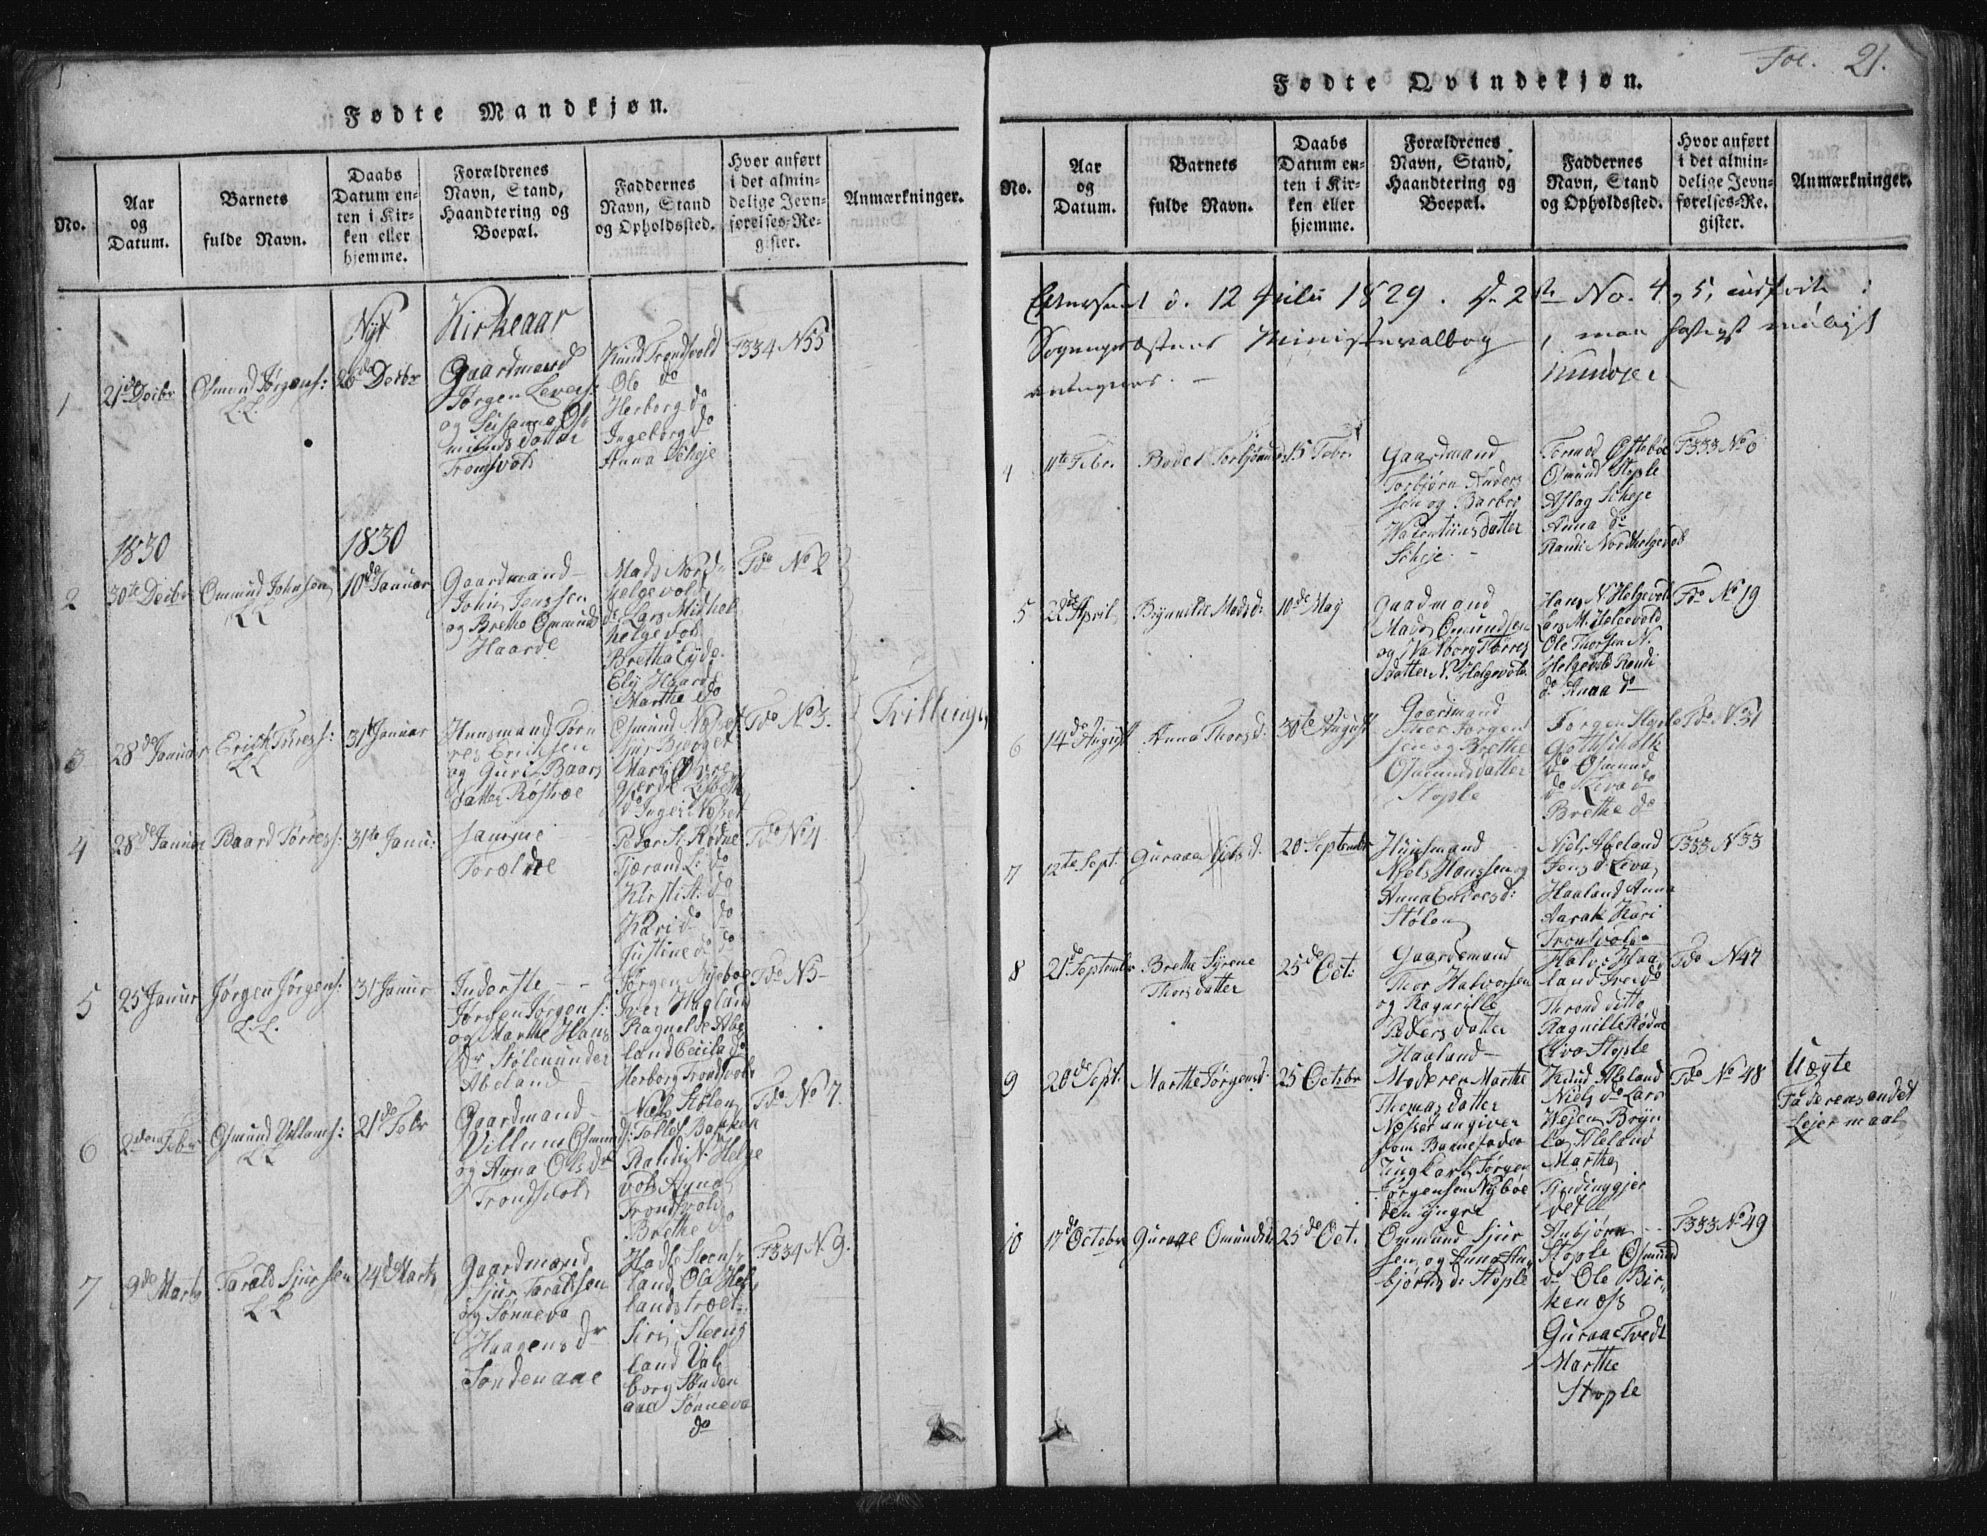 Fol. 21.
Fødte Mandkjøn.
No.
Aar
og
Datum.
Barnets
fulde Navn.
Daabs
Datum en-
ten i Kir-
ken eller
hjemme.
Forældrenes
Navn, Stand,
Haandtering og
Boepæl.
Faddernes
Navn, Stand
og Opholdssted.
Hvor anført
i det almin-
delige Jevn-
førelses-Re-
gister.
Anmærkninger.
Nyt Kirkeaar
1
21de Decbr
Osmund Jørgens:
L.L.
26de Decbr
Gaardmand
Jørgen Levers:
og Susanna Os-
munds datter
Tronsvold
Knud Trondsvold
Ole do
Herborg do
Ingeborg do
Anna Scheje
F334 N55
1830
1830
2
30te Decbr
Omund Johnsen
LL
10de Januar
Gaardmand
John Jenssen
og Brette Omund
Haarde
Mads Nord-
helgevold
Lars Midhel
helgevold
Bretha Eyde
Ely Haarde
Marthe do
Fdo No 2
3
28de Januar
Erich Tørress:
LL
31 Januar
Huusmand Tør-
res Erichsen
og Guri Baars
datter Røstøe
Osmund Næsset
Fdo No 3.
Trillinger
4
28de Januar
Baard Tørress:
31te Janu:
samme
Forældre
Peder St. Rødne
Tjerand L: do
Kirsti St: do
Kari do do
Justine do do
Fdo No 4
5
25 Januar
Jørgen Jørgens:
L.L.
31 Januar
Inderste
Jørgen Jørgens:
og Marthe Hans
Dr Stølen under
Abeland
Jørgen Nyeboe
Iver Hagland
Ragnelde Abe
land Cecilia do
Herborg Trondsvold
Fdo N5
6
2den Febr
Osmund Villums:
LL
21de Febr
Gaardmand
Villum Osmund
og Anna Ols dr
Trondsvold
Niels Stølen
Randi N. Helge
vold Anna
Trondsvold
Brethe do
Fdo No 7.
7
9de Marts
Tarald Sjursen
LL
14de Marts
Gaardmand
Sjur Taraldsen
og Sønneva
Haagensdr
Søndenaae
Hadle Steens-
land Ola Hes
landstræet
Siri Steens
land Val
borg Sønden
aae Sønneva
do
F334 N 9.
Fødte Qvindekjøn.
No.
Aar
og
Datum.
Barnets
fulde Navn.
Daabs
Datum en-
ten i Kir-
ken eller
hjemme.
Forældrenes
Navn, Stand,
Haandtering og
Boepæl.
Faddernes
Navn, Stand
og Opholdssted.
Hvor anført
i det almin-
delige Jevn-
førelses-Re-
gister.
Anmærkninger.
Efterseet d. 12 Julii 1829. De 2de No. 4 og 5, indført i
Sognepræstens Ministerialbog, maa hastigst muligt
4
11te Febr.
Bodel Torbjørnsd:
15 Febr.
Gaardmand
Torbjørn Anders
sen og Barbro
Walentiinsdatter
Scheje
Tormod Østebøe
Osmund Stople
Aslag Scheje
Anna do
Randi Nordhelgevold
F333 No 6
5
22de April
Brynnilde Madsd:
10de May
Gaardmand
Mads Omundsen
og Valborg Tørres
datter N. Helgevold
Hans N Helgevold
Lars M. Helgevold
Ole Thorsen N.
Helgevold Randi
do Anna do
Fdo No 19
6
14de August
Anna Thorsd:
30te August
Gaardmand
Thor Jørgen
sen og Brethe
Osmundsdatter
Stople
Jørgen Stople
Gotthschalk
do Osmund
do Leva do
Brethe do
Fdo N31
7
12te Sept.
Guraae Nielsd:
20 September
Huusmand
Niels Hanssen og
Anna Endresd:
Stølen
Niels Abeland
Jens do Leva
Haaland Anna
Aarak Kari
Trondsvold
F333 N33
8
21de September
Brethe Syrene
Thorsdatter
25de Oct:
Gaardmand
Thor Halvorsen
og Ragnille
Peders datter
Haaland
Halvo Haa
land Iver do
Thrond ditto
Ragnille Rødne
Leva Stople
Fdo N47
9
20de Sept.
Marthe Jørgensd:
25 Octobr
Moderen Marthe
Thomasdatter
Næsset angiver
som Barnefader
Ungkarl Jørgen
Jørgensen Nybøe
den yngre
Knud Abeland
Niels do Lars
Vejen Bryn
Marthe
Fdo No 48
Uægte
Faderens andet
Lejermaal
10
17de October
Guraae Omundsdr
25de Oct.
Ommund Sjur
sen og Anna An-
bjørns dr Stople
Anbjørn
Stople Osmund
do Ole Bir-
kenæss
Guraae Tvedt
Marthe
Stople
F333 No 49